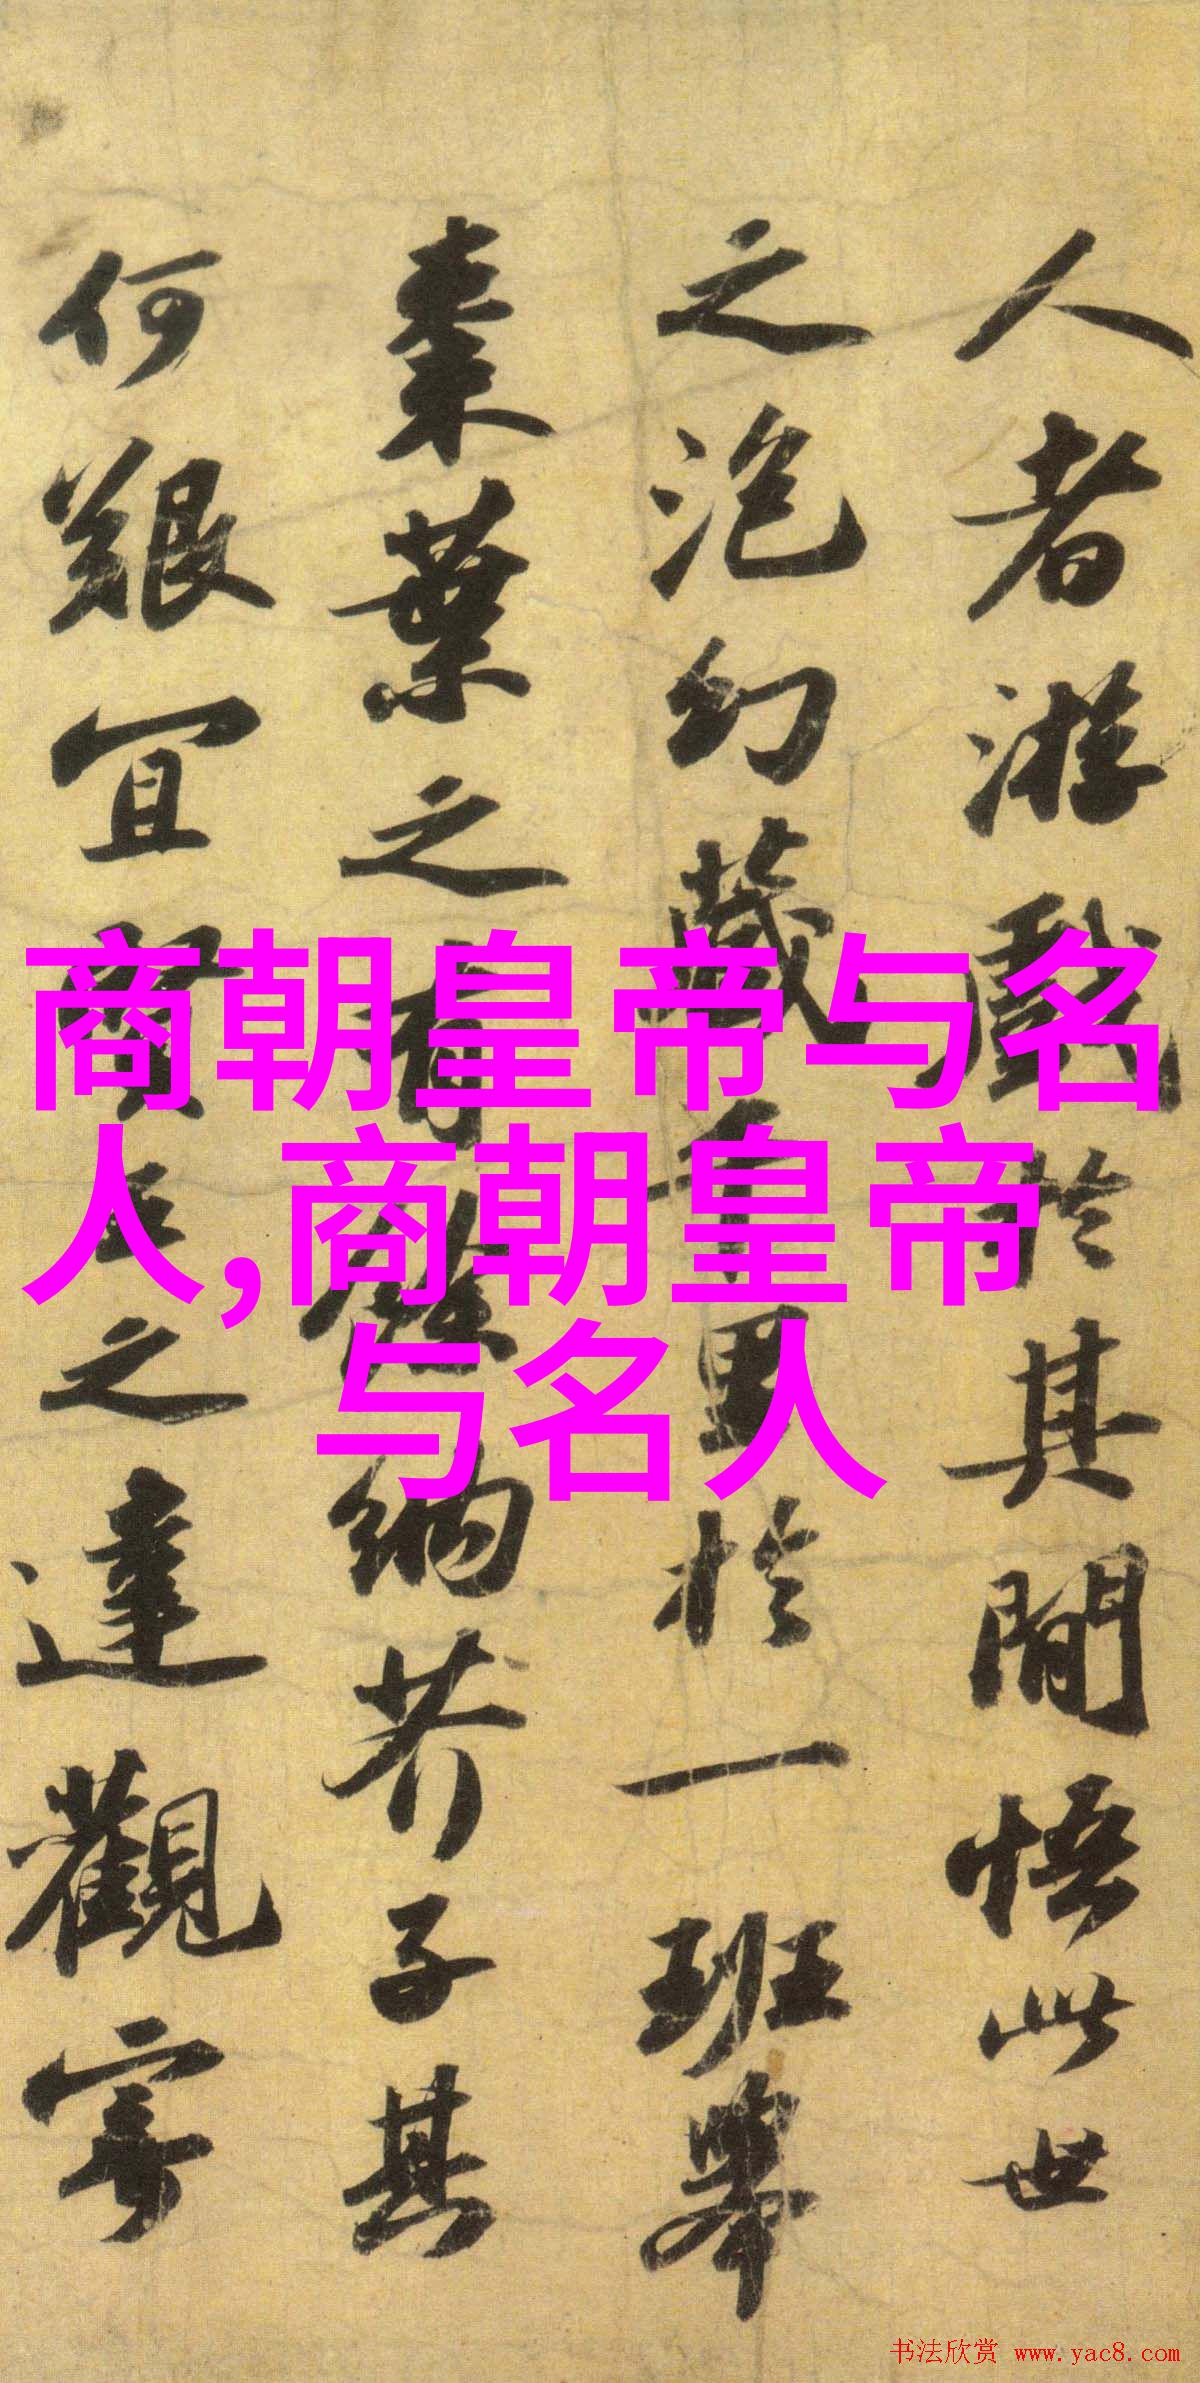 人者游戲於其間悟此世
之泡幻藏千里於一班舉
棗葉之有餘納芥子其
何艱宜賢王之達觀寄
商朝皇帝与名
人,商朝皇帝
与名人
书法欣赏 www.yac8.com